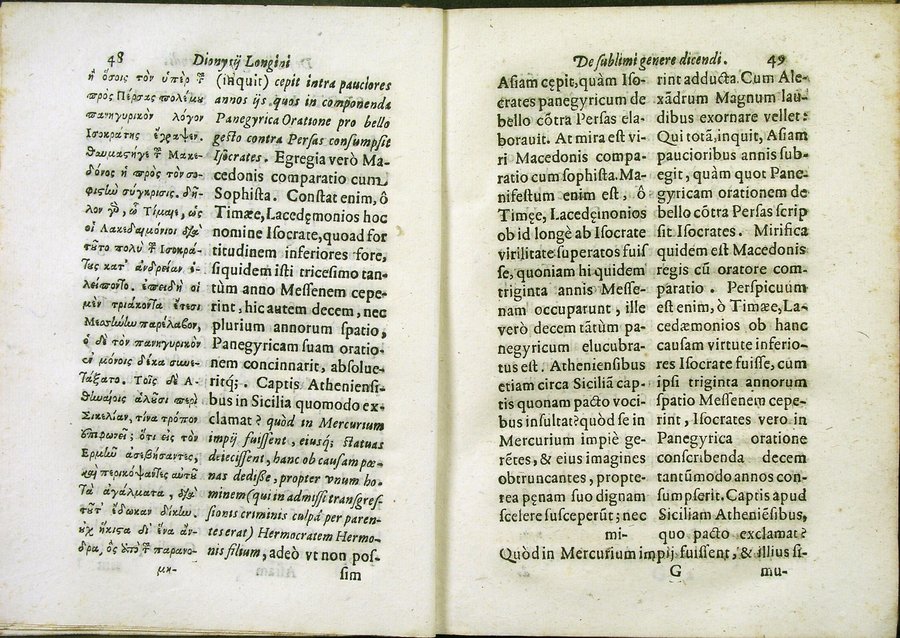 48
Dionysij Longini
ἢ ὅσοις τὸν ὑπὲρ τ͂
πρὸς Πέρσας πολέμου
πανηγυρικὸν λόγον
Ἰσοκράτης ἔγραψεν.
θαυμαστήγε τ͂ Μακε-
δόνος ἡ πρὸς τὸν σο-
φιστὴν σύγκρισις. δῆ-
λον γὸ, ὦ Τίμαιε, ὡς
οἱ Λακεδαιμόνιοι διὰ
τοῦτο πολὺ τ͂ Ἰσοκρά-
τους κατ᾽ ἀνδρείαν ἐ-
λείποντο. ἐπειδὴ οἱ
μὲν τριάκοντα ἔτεσι
Μεσσήνην παρέλαβον,
ὁ δὲ τὸν πανηγυρικὸν
ἐν μόνοις δέκα συνε-
τάξατο. Τοῖς δὲ Ἀ-
θηναίοις ἁλοῦσι περὶ
Σικελίαν, τίνα τρόπον
ἐπιφωνεῖ; ὅτι εἰς τὸν
Ἑρμῆν ἀσεβήσαντες,
καὶ περικόψαντες αὐτοῦ
τὰ ἀγάλματα, διὰ
τοῦτ᾽ ἔδωκαν δίκην.
οὐχ ἥκιστα δι᾽ ἕνα ἄν-
δρα, ὃς ἀπὸ τ͂ παρανο-
μη-
(inquit) cepit intra pauciores
annos ijs quos in componenda
Panegyrica Oratione pro bello
gesto contra Persas consumpsit
Isocrates. Egregia verò Ma-
cedonis comparatio cum
Sophista. Constat enim, ô
Timæe, Lacedęmonios hoc
nomine Isocrate, quoad for
titudinem inferiores fore,
siquidem isti tricesimo tan-
tùm anno Messenem cepe-
rint, hic autem decem, nec
plurium annorum spatio,
Panegyricam suam oratio-
nem concinnarit, absolue-
ritq́;. Captis Atheniensi-
bus in Sicilia quomodo ex-
clamat? quòd in Mercurium
impij fuissent, eiusq́; statuas
deiecissent, hanc ob causam pœ-
nas dedisse, propter vnum ho-
minem (qui in admissi transgres-
sionis criminis culpa per paren-
tes erat) Hermocratem Hermo-
nis filium, adeò vt non pos-
sim
De sublimi genere dicendi.
49
Asiam cepit, quàm Iso-
crates panegyricum de
bello cõtra Persas ela-
borauit. At mira est vi-
ri Macedonis compa-
ratio cum sophista. Ma-
nifestum enim est, ô
Timęe, Lacedęmonios
ob id longè ab Isocrate
virilitate superatos fuis
se, quoniam hi quidem
triginta annis Messe-
nam occuparunt, ille
verò decem tãtùm pa-
negyricum elucubra-
tus est. Atheniensibus
etiam circa Siciliã cap-
tis quonam pacto voci-
bus insultat? quòd se in
Mercurium impiè ge-
rẽtes, & eius imagines
obtruncantes, propte-
rea pęnam suo dignam
scelere susceperũt; nec
mi-
rint adducta. Cum Ale-
xãdrum Magnum lau-
dibus exornare vellet:
Qui totã, inquit, Asiam
paucioribus annis sub-
egit, quàm quot Pane-
gyricam orationem de
bello cõtra Persas scrip
sit Isocrates. Mirifica
quidem est Macedonis
regis cũ oratore com-
paratio. Perspicuum
est enim, ò Timæe, La-
cedæmonios ob hanc
causam virtute inferio-
res Isocrate fuisse, cum
ipsi triginta annorum
spatio Messenem cepe-
rint, Isocrates vero in
Panegyrica oratione
conscribenda decem
tantũmodo annos con-
sumpserit. Captis apud
Siciliam Atheniẽsibus,
quo pacto exclamat?
Quòd in Mercurium impij fuissent, & illius si-
G
mu-